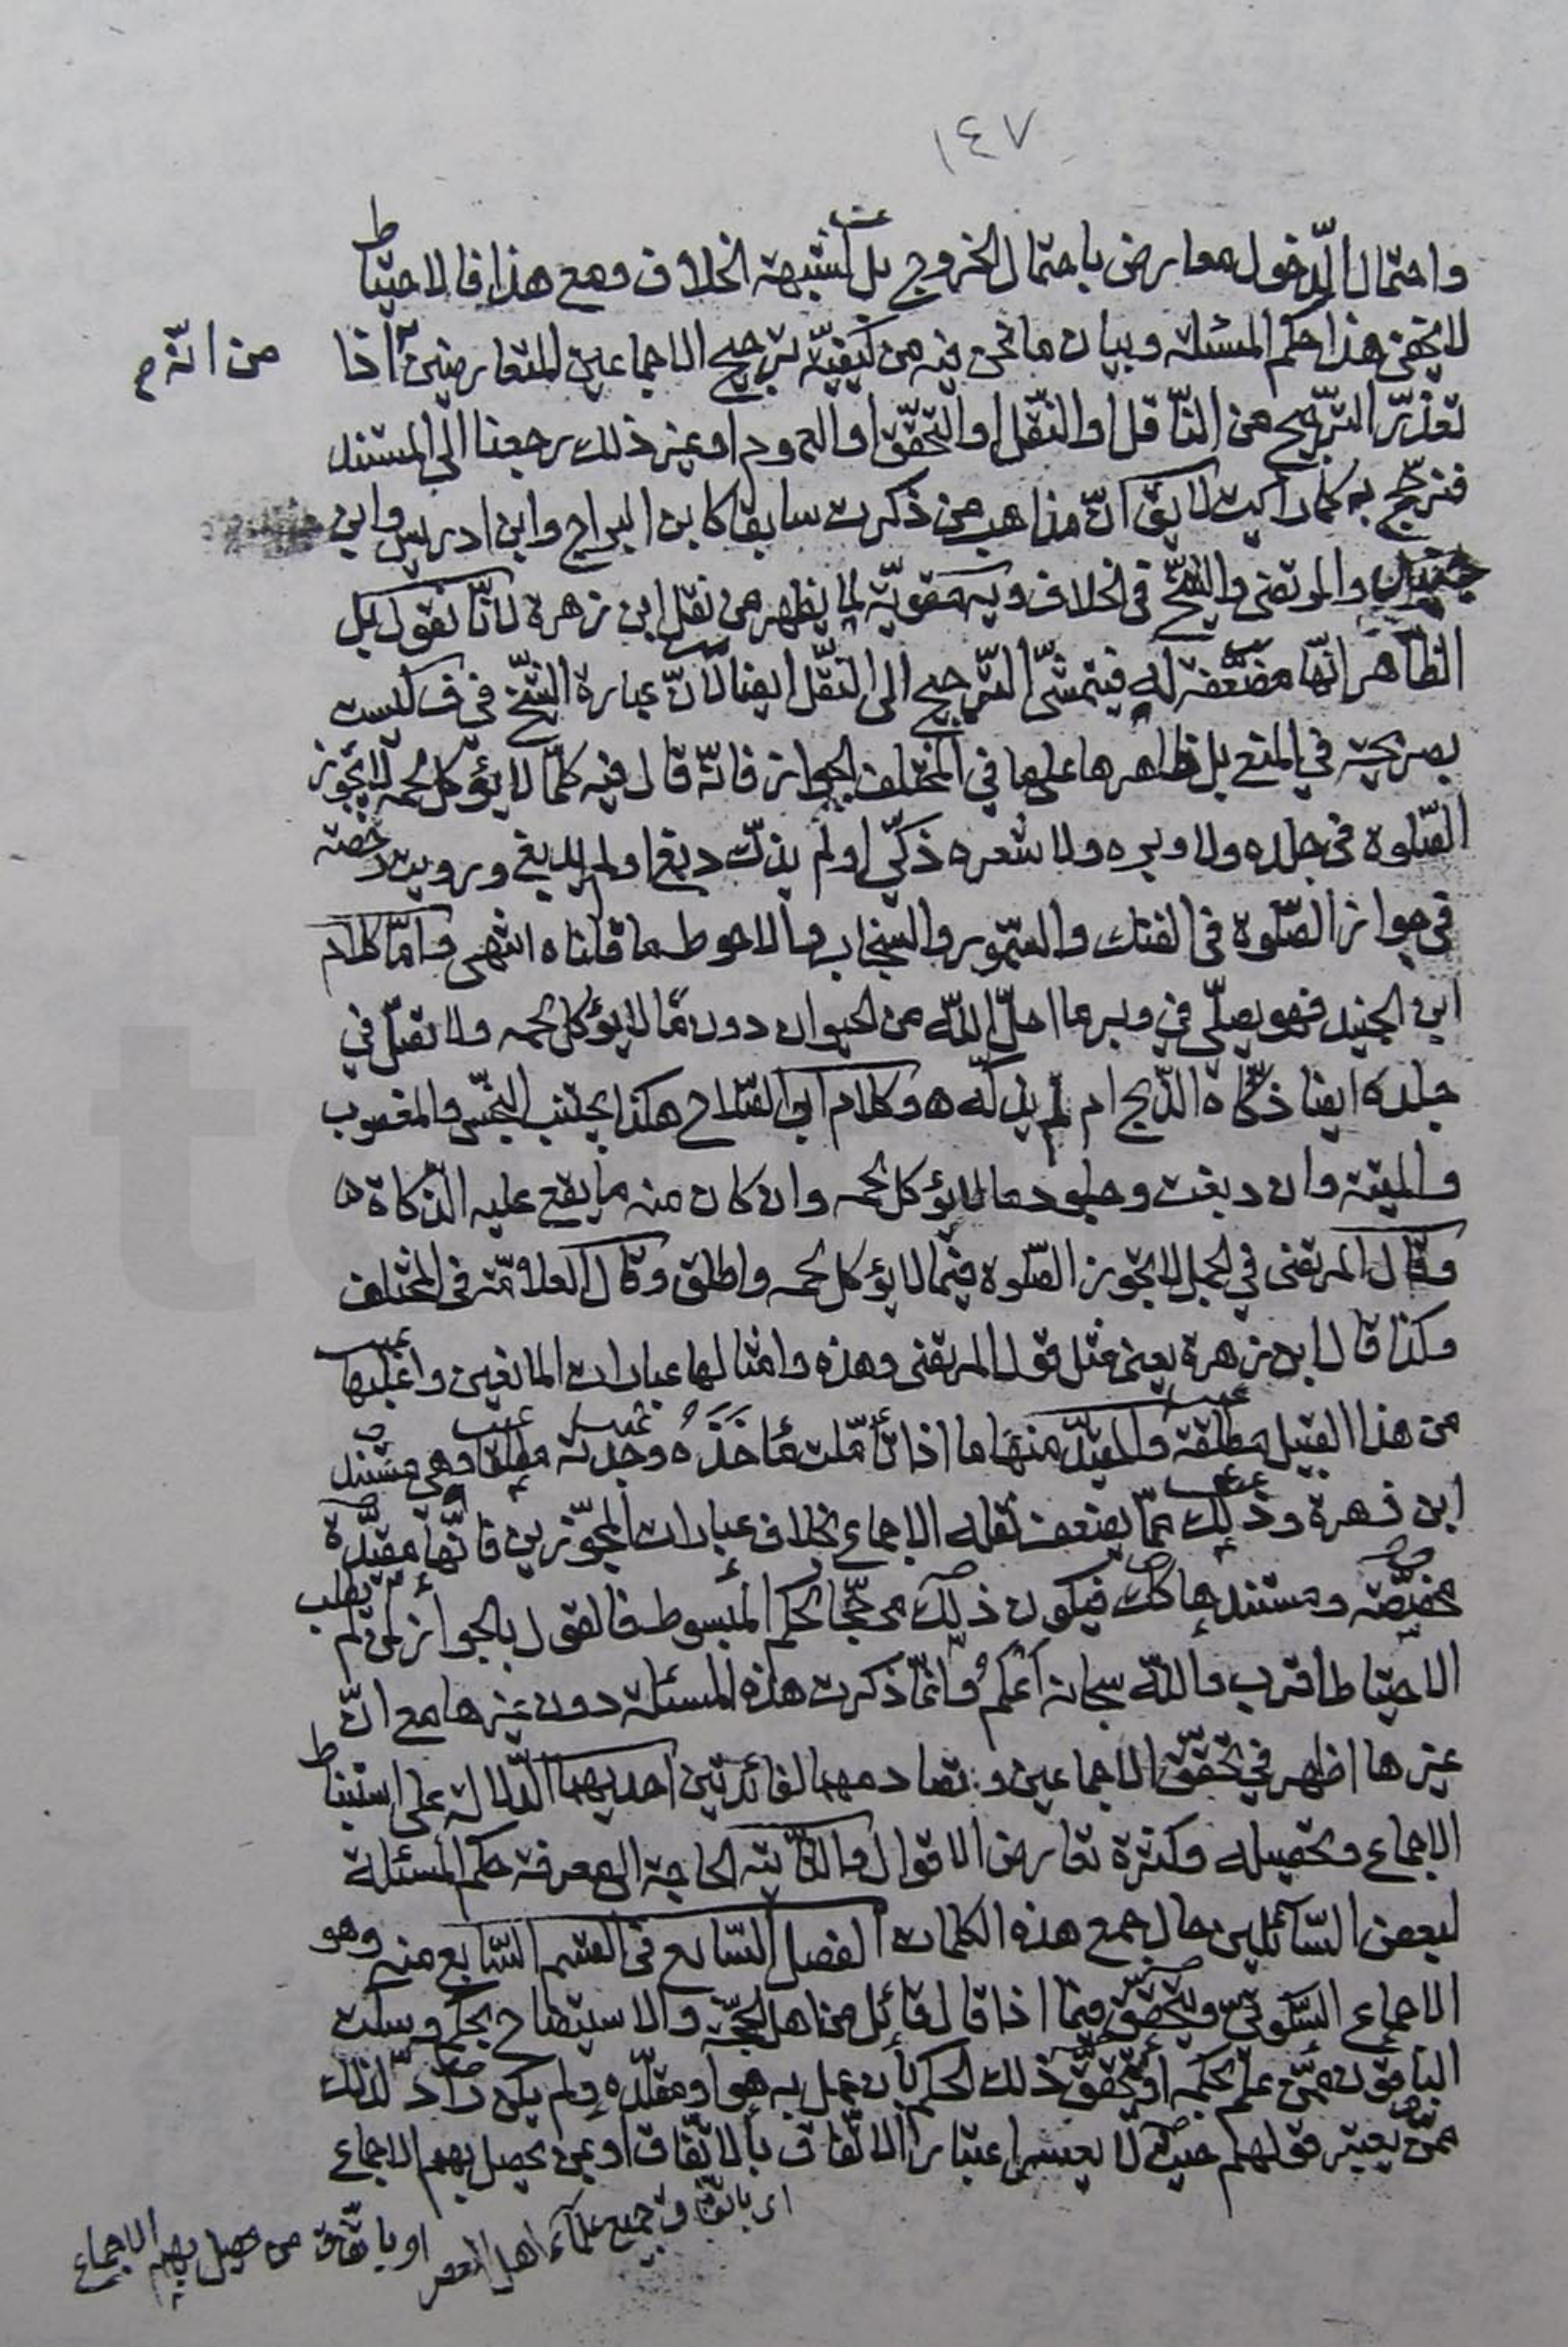 ١٤٧
واحتمال الدّخول معارض باحتمال الخروج بل كشبهة الخلاف ومع هذا فالاحتياط
لا يخفى هذا حكم المسئلة وبيان ما نحن فيه من كيفيّة ترجيح الاجماعين المتعارضين اذا
من انّه م
تعذّر التّرجيح من النّاقل او النّقل او التحقّق او الورود او غير ذلك رجعنا الى المستند
فنرجّح به كما رأيت لا يق انّ مذاهب من ذكرت سابقا كابن البراج وابن ادريس وابن
جنيد والمرتضى والشّيخ في الخلاف ويه مقويّة لما يظهر من نقل ابن زهرة لانّا نقول بل
الظّاهر انّها مضعّفة له فيتمشّى التّرجيح الى النّقل ايضا لانّ عبارة الشّيخ في ف ليست
بصريحة في المنع بل ظاهرها على ما في المختلف الجواز فانّه قال فيه كلّما لا يؤكل لحمه لا يجوز
الصّلوة في جلده ولا وبره ولا شعره ذكّي او لم يذكّ دبغ او لم يدبغ ورويت رخصة
في جواز الصّلوة في الفنك والسّمور والسّنجاب والاحوط ما قلناه انتهى وامّا كلام
ابن الجنيد فهو يصلّي في وبر ما احلّ اللّه من الحيوان دون ما لا يؤكل لحمه ولا تصلّ في
جلده ايضا ذكّاه الذّبح ام لم يذكّه ه وكلام ابي الصّلاح هكذا يجتنب النّجس والمغصوب
والميتة وان دبغت وجلود ما لا يؤكل لحمه وان كان منه ما يقع عليه الذّكاة ه
وقال المرتضى في الجمل لا يجوز الصّلوة فيما لا يؤكل لحمه واطلق وقال العلامّة في المختلف
وكذا قال ابن زهرة يعني مثل قول المرتضى وهذه وامثالها عبارات المانعين واغلبها
من هذا القبيل مطلقة والمقيّد منها ما اذا تأمّلت مأخذه وجدته مطلقا وهي مستند
ابن زهرة وذلك ممّا يضعف نقله الاجماع بخلاف عبارات المجوّزين فانّها مقيّدة
مخصّصة ومستندها كك فيكون ذلك مرجّحا لحكم المبسوط فالقول بالجواز لمن لم يطلب
الاحتياط اقرب واللّه سبحانه اعلم وانّما ذكرت هذه المسئلة دون غيرها مع انّ
غيرها اظهر في تحقّق الاجماعين وتصادمهما لفائدتين احديهما الدّلالة على استنباط
الاجماع وتحصيله وكثرة تعارض الاقوال والثّانية الحاجة الى معرفة حكم المسئلة
لبعض السّائلين حال جمع هذه الكلمات الفصل السّابع في القسم السّابع منه وهو
الاجماع السّكوتيّ ويتحقّق فيما اذا قال قائل من اهل الحجّة والاستيضاح بحكم وسكت
الباقون ممّن علم بحكمه او تحقّق ذلك الحكم بأن عمل به هو او مقلّده ولم يكن رادّ لذلك
ممّن يعتبر قولهم حيث لا يعسر اعتبار الاتّفاق بالاتّفاق او بمن يحصل بهم الاجماع
اى باتّفاق جميع علمآء اهل العصر او باتّفاق من حصل بهم الاجماع